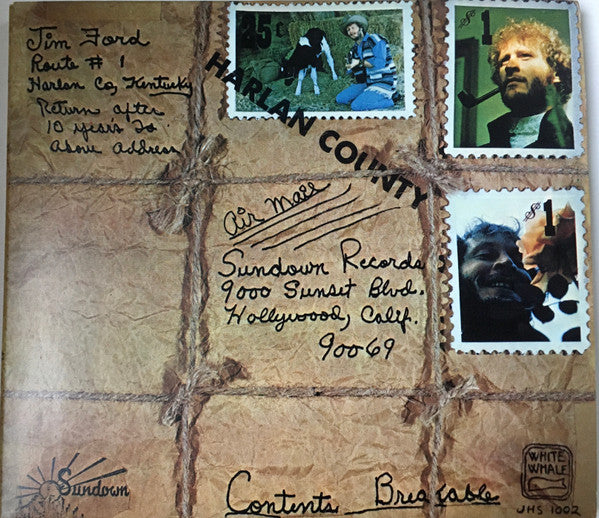 Jim Ford
Route # 1
Harlan Co, Kentucky
Return after
10 years to
Above Address
45¢
1
1
HARLAN COUNTY
Air Mail
Sundown Records
9000 Sunset Blvd.
Hollywood, Calif.
90069
Sundown
Contents Breakable
WHITE
WHALE
JHS 1002